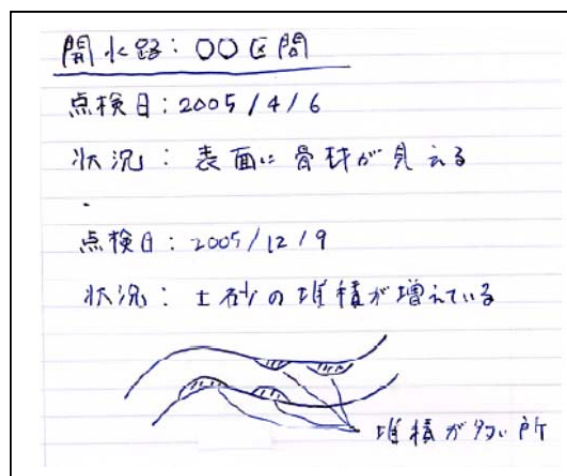 開水路：〇〇区間
点検日：2005/4/6
状況：表面に骨材が見える
点検日：2005/12/9
状況：土砂の堆積が増えている
堆積が多い所